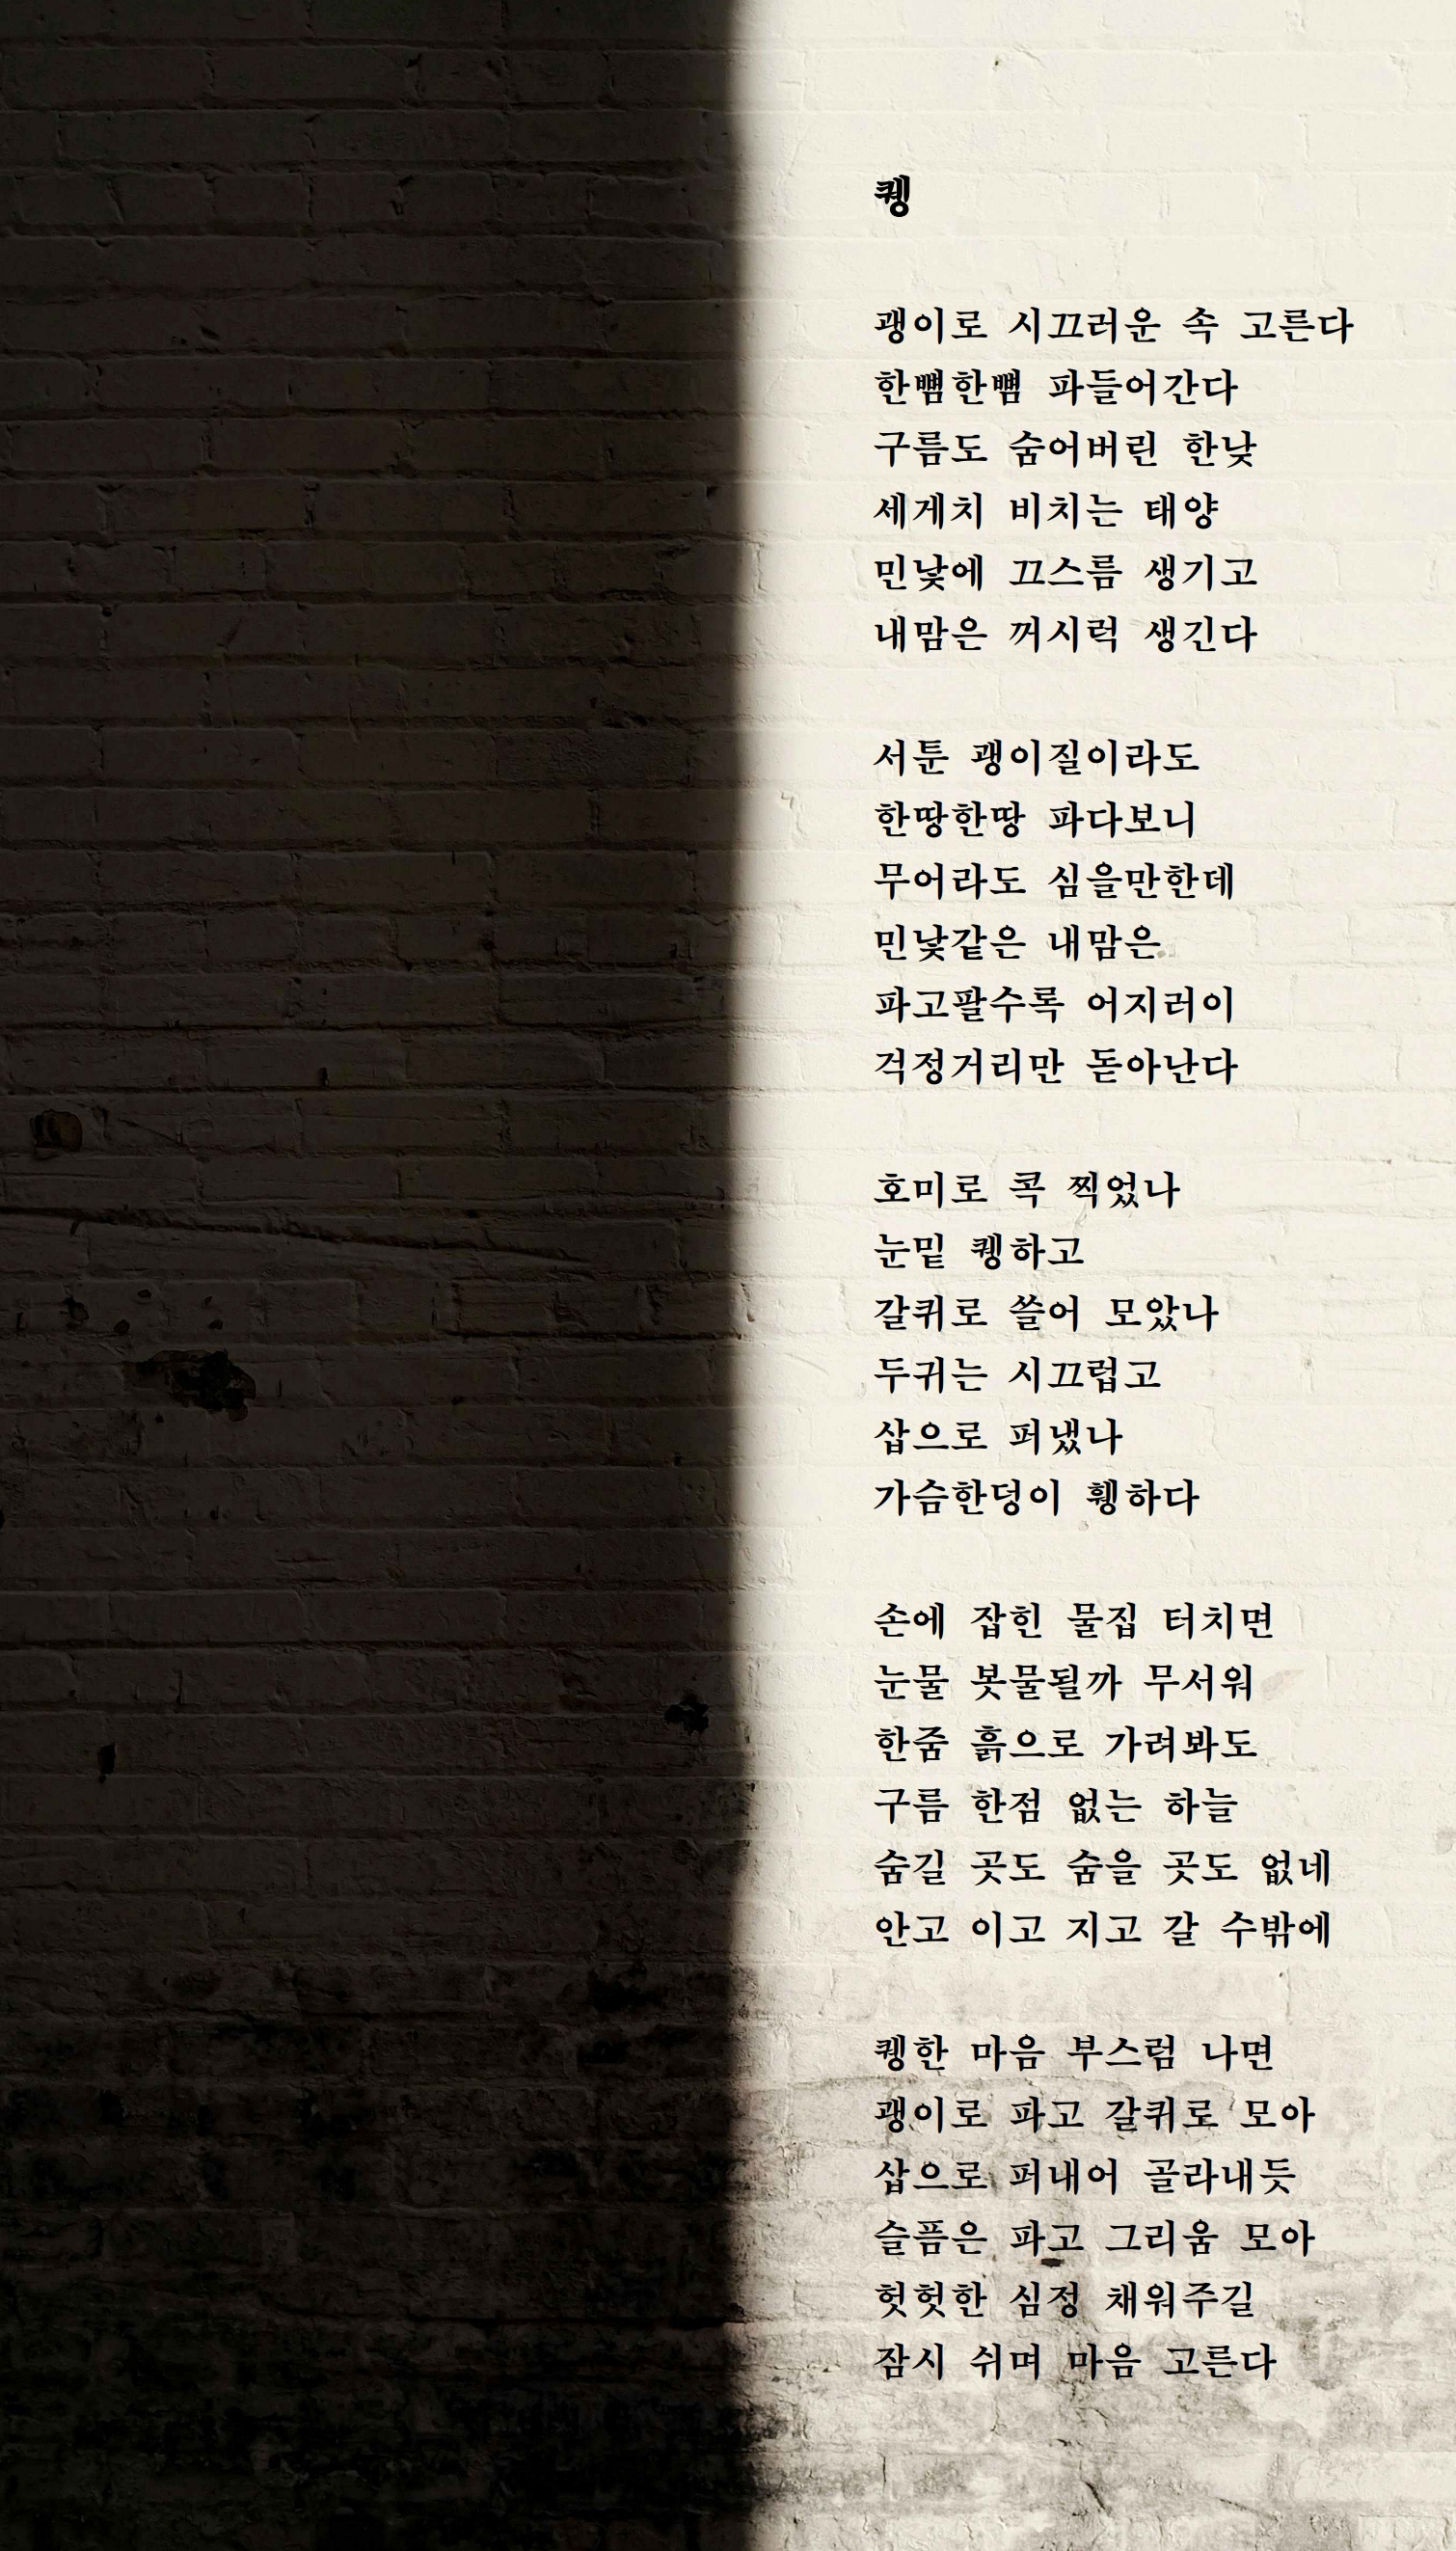 퀭
괭이로 시끄러운 속 고른다
한뼘한뼘 파들어간다
구름도 숨어버린 한낮
세게치 비치는 태양
민낯에 끄스름 생기고
내맘은 꺼시럭 생긴다
서툰 괭이질이라도
한땅한땅 파다보니
무어라도 심을만한데
민낯같은 내맘은
파고팔수록 어지러이
걱정거리만 돋아난다
호미로 콕 찍었나
눈밑 퀭하고
갈퀴로 쓸어 모았나
두귀는 시끄럽고
삽으로 퍼냈나
가슴한덩이 휑하다
손에 잡힌 물집 터치면
눈물 봇물될까 무서워
한줌 흙으로 가려봐도
구름 한점 없는 하늘
숨길 곳도 숨을 곳도 없네
안고 이고 지고 갈 수밖에
퀭한 마음 부스럼 나면
괭이로 파고 갈퀴로 모아
삽으로 퍼내어 골라내듯
슬픔은 파고 그리움 모아
헛헛한 심정 채워주길
잠시 쉬며 마음 고른다